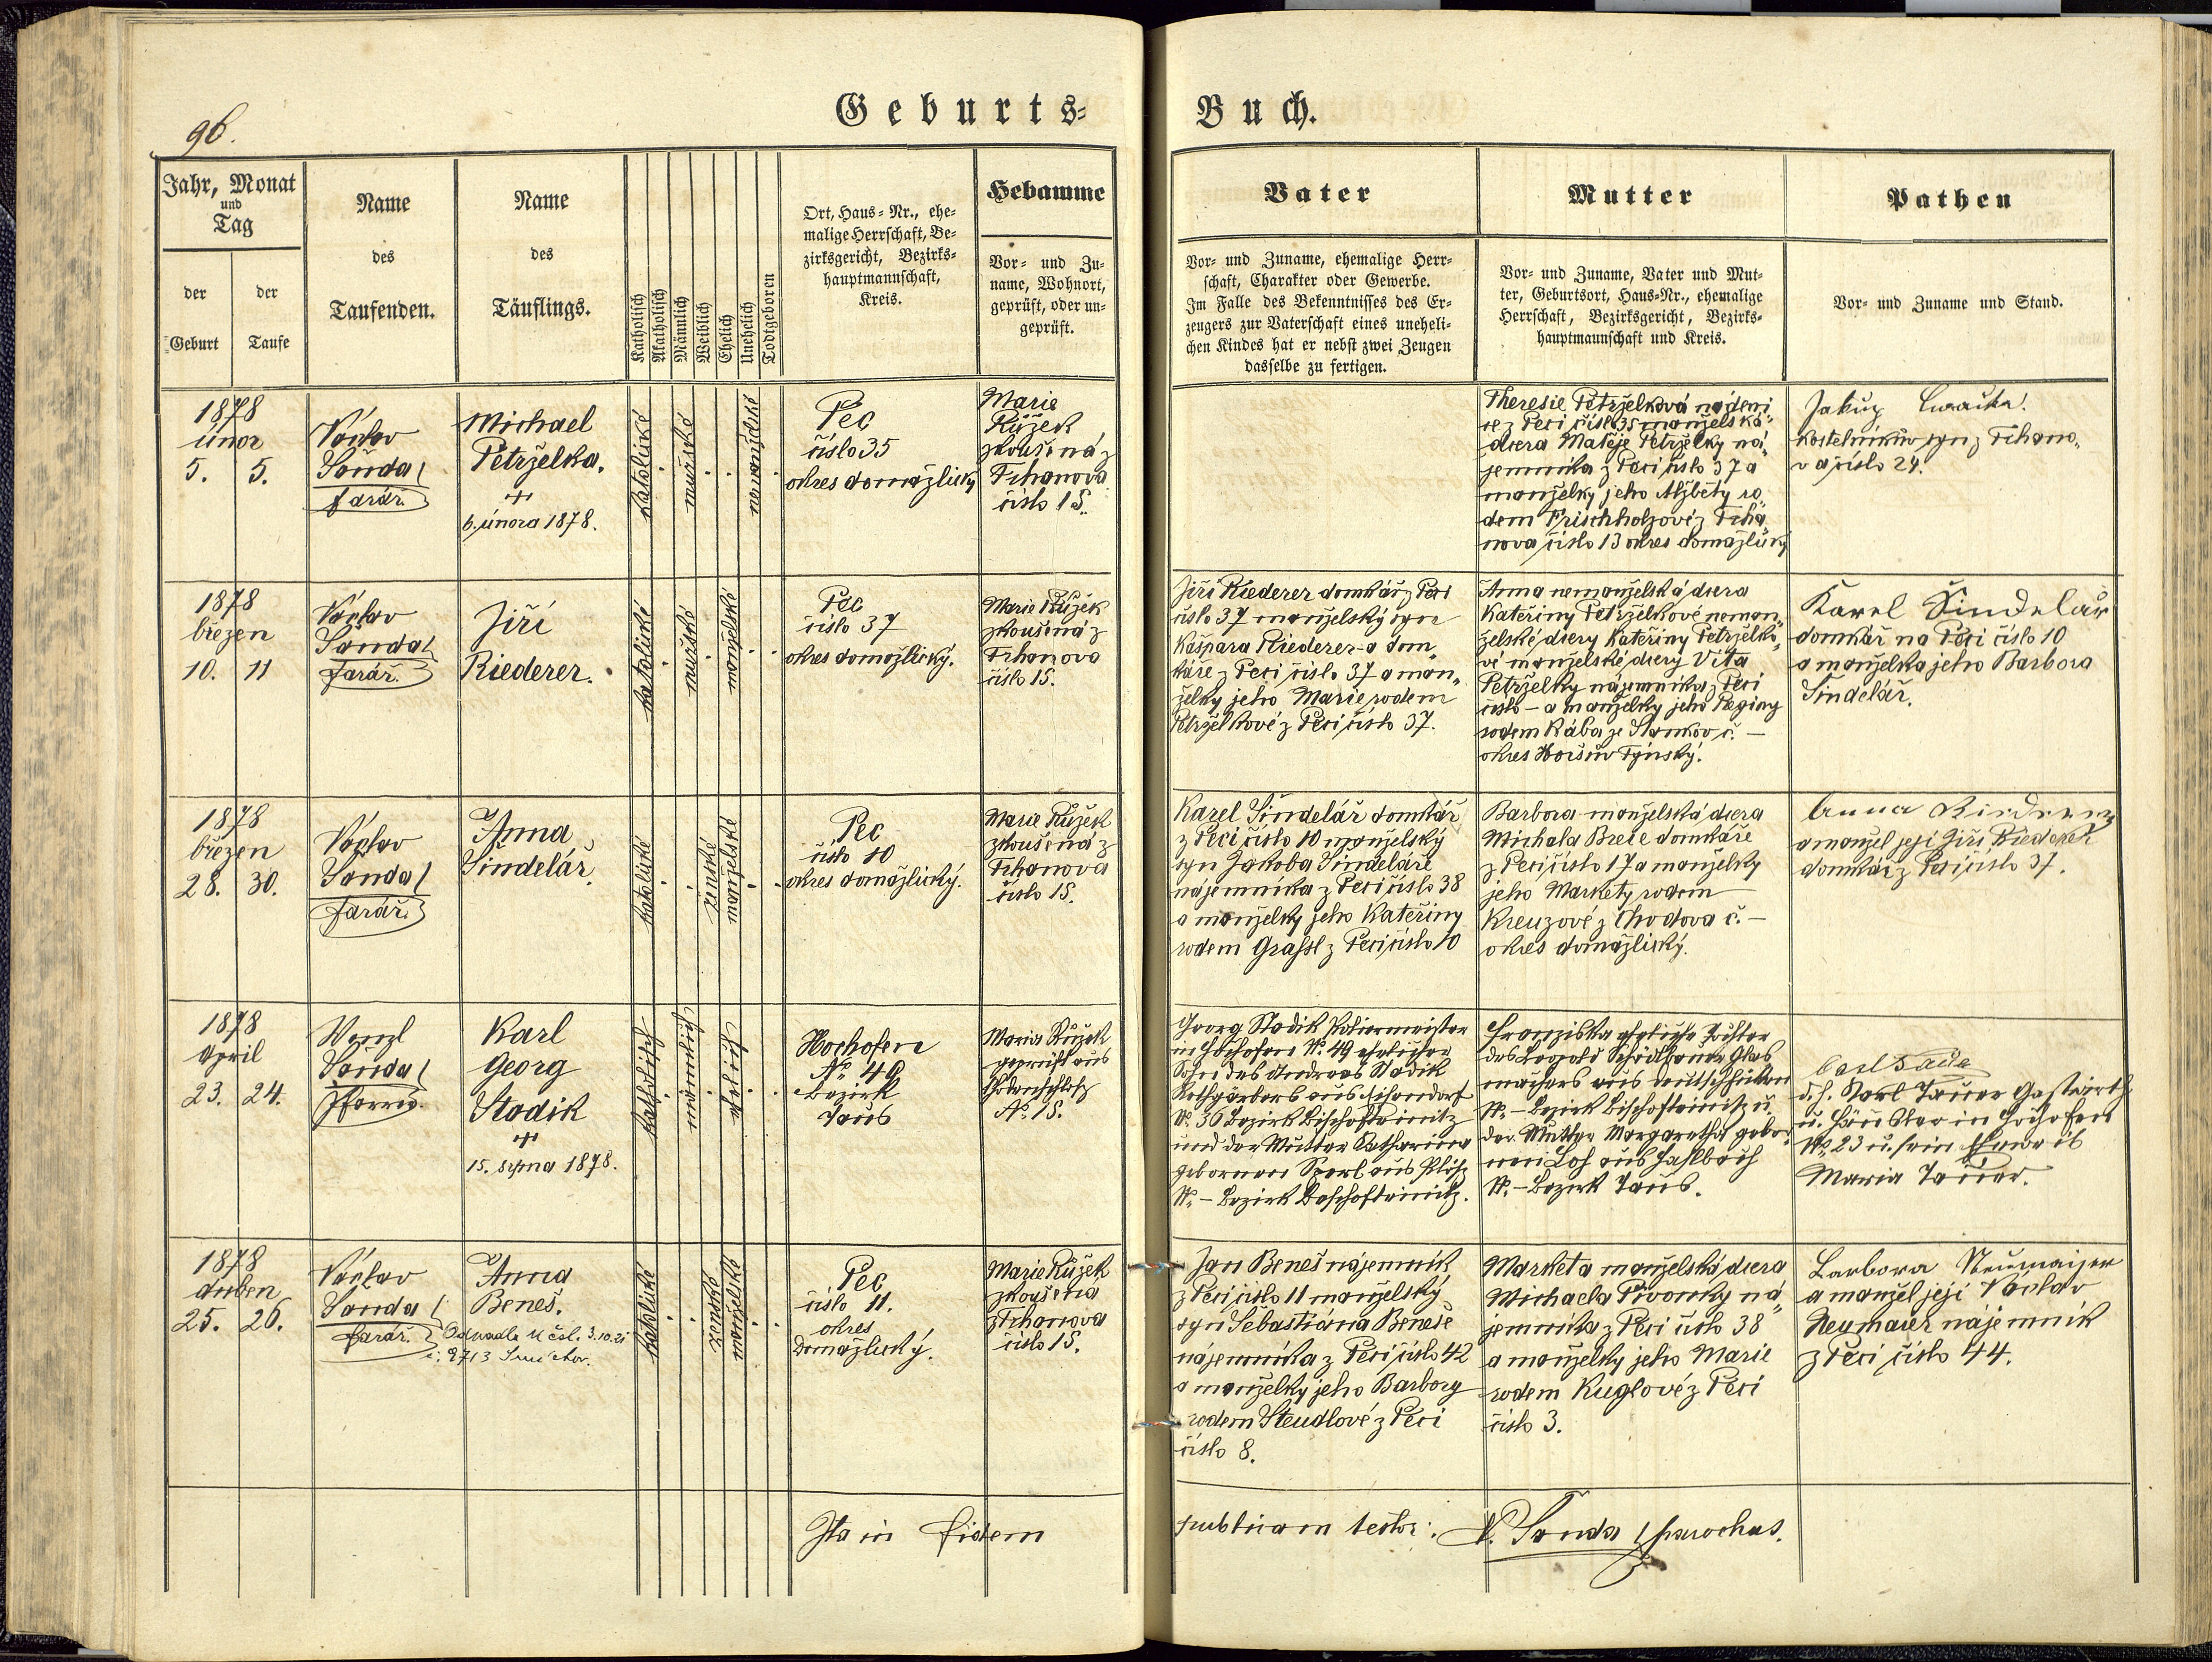 96.
Geburts-
Buch.
Jahr, Monat
und
Tag
der
Geburt
der
Taufe
Name
des
Taufenden.
Name
des
Täuflings.
Katholisch
Akatholisch
Männlich
Weiblich
Ehelich
Unehelich
Todtgeboren
Ort, Haus-Nr., ehe-
malige Herrschaft, Be-
zirksgericht, Bezirks-
hauptmannschaft,
Kreis.
Hebamme
Vor- und Zu-
name, Wohnort,
geprüft, oder un-
geprüft.
Vater
Vor- und Zuname, ehemalige Herr-
schaft, Charakter oder Gewerbe.
Im Falle des Bekenntnisses des Er-
zeugers zur Vaterschaft eines uneheli-
chen Kindes hat er nebst zwei Zeugen
dasselbe zu fertigen.
Mutter
Vor- und Zuname, Vater und Mut-
ter, Geburtsort, Haus-Nr., ehemalige
Herrschaft, Bezirksgericht, Bezirks-
hauptmannschaft und Kreis.
Pathen
Vor- und Zuname und Stand.
1878
únor
5. 5.
Václav
Šanda
farář.
Michael
Petrželka.
+
6. února 1878.
katolické
mužské
Pec
číslo 35
okres domažlický
Marie
Růžek
zkoušená z
Trhanova
číslo 15.
Theresie Petrželková nádeni
ce z Peci číslo 35 manželská
dcera Matěje Petrželky ná-
jemníka z Peci číslo 37 a
manželky jeho Alžběty ro-
dem Frischholzové z Trha-
nova číslo 13 okres domažlický
Jakub
kostelníkův syn z Trhano-
va číslo 24.
1878
březen
10. 11
Václav
Šanda
farář.
Jiří
Riederer.
katolické
mužské
manželské
Pec
číslo 37
okres domažlický.
Marie Růžek
zkoušená z
Trhanova
číslo 15.
Jiří Riederer domkář z Peci
číslo 37 manželský syn
Kašpara Riederer-a dom-
káře z Peci číslo 37 a man-
želky jeho Marie rodem
Petrželkové z Peci číslo 37.
Anna nemanželská dcera
Kateřiny Petrželkové neman-
želské dcery Kateřiny Petrželko-
vé manželské dcery Víta
Petrželky nájemníka z Peci
číslo – a manželky jeho Reginy
rodem Rába ze Stankov č. –
okres Horšův Týnský.
Karel Šindelář
domkář na Peci číslo 10
a manželka jeho Barbora
Šindelář.
1878
březen
28. 30.
Václav
Šanda
farář.
Anna
Šindelář.
katolické
ženské
manželské
Pec
číslo 10
okres domažlický.
Marie Růžek
zkoušená z
Trhanova
číslo 15.
Karel Šindelář domkář
z Peci číslo 10 manželský
syn Jakoba Šindeláře
nájemníka z Peci číslo 38
a manželky jeho Kateřiny
rodem Grassl z Peci číslo 10
Barbora manželská dcera
Michala Breie domkáře
z Peci číslo 17 a manželky
jeho Markety rodem
Kreuzové z Chodova č. –
okres domažlický.
Anna
a manžel její Jiří Riederer
domkář z Peci číslo 37.
1878
April
23. 24.
Wenzl
Šanda
Pfarrer.
Karl
Georg
Stadik
+
15. srpna 1878.
katholisch
männlich
ehelich
Hochofen
No 49
Bezirk
Taus
Maria Růžek
geprüft aus
Chodenschloß
No. 15.
Georg Stadik Poliermeister
in Hochofen No. 49 ehelicher
Sohn des Andreas Stadik
No. 36 Bezirk Bischofteinitz
und der Mutter Katharina
gebornen
No. – Bezirk Bischofteinitz.
Franziska eheliche Tochter
des Leopold
machers aus Deutschhütten
No. – Bezirk Bischofteinitz u.
der Mutter Margaretha gebor-
nen
No. – Bezirk Taus.
d. h. Karl Tauer Gastwirth
u. Händler in Hochofen
No 23 u. sein Eheweib
Maria Tauer.
1878
duben
25. 26.
Václav
Šanda
farář.
Anna
Beneš.
3.10.21
katolické
ženské
manželské
Pec
číslo 11.
okres
Domažlický.
Marie Růžek
zkoušená
z Trhanova
číslo 15.
Jan Beneš nájemník
z Peci číslo 11 manželský
syn Sebastiána Beneše
nájemníka z Peci číslo 42
a manželky jeho Barbory
rodem Steudlové z Peci
číslo 8.
Marketa manželská dcera
Michaela Pivonky ná-
jemníka z Peci číslo 38
a manželky jeho Marie
rodem Kuglové z Peci
číslo 3.
Barbora Neumaijer
a manžel její Václav
Neymaier nájemník
z Peci číslo 44.
Ita in fidem
publicam testor: V. Šanda parochus.